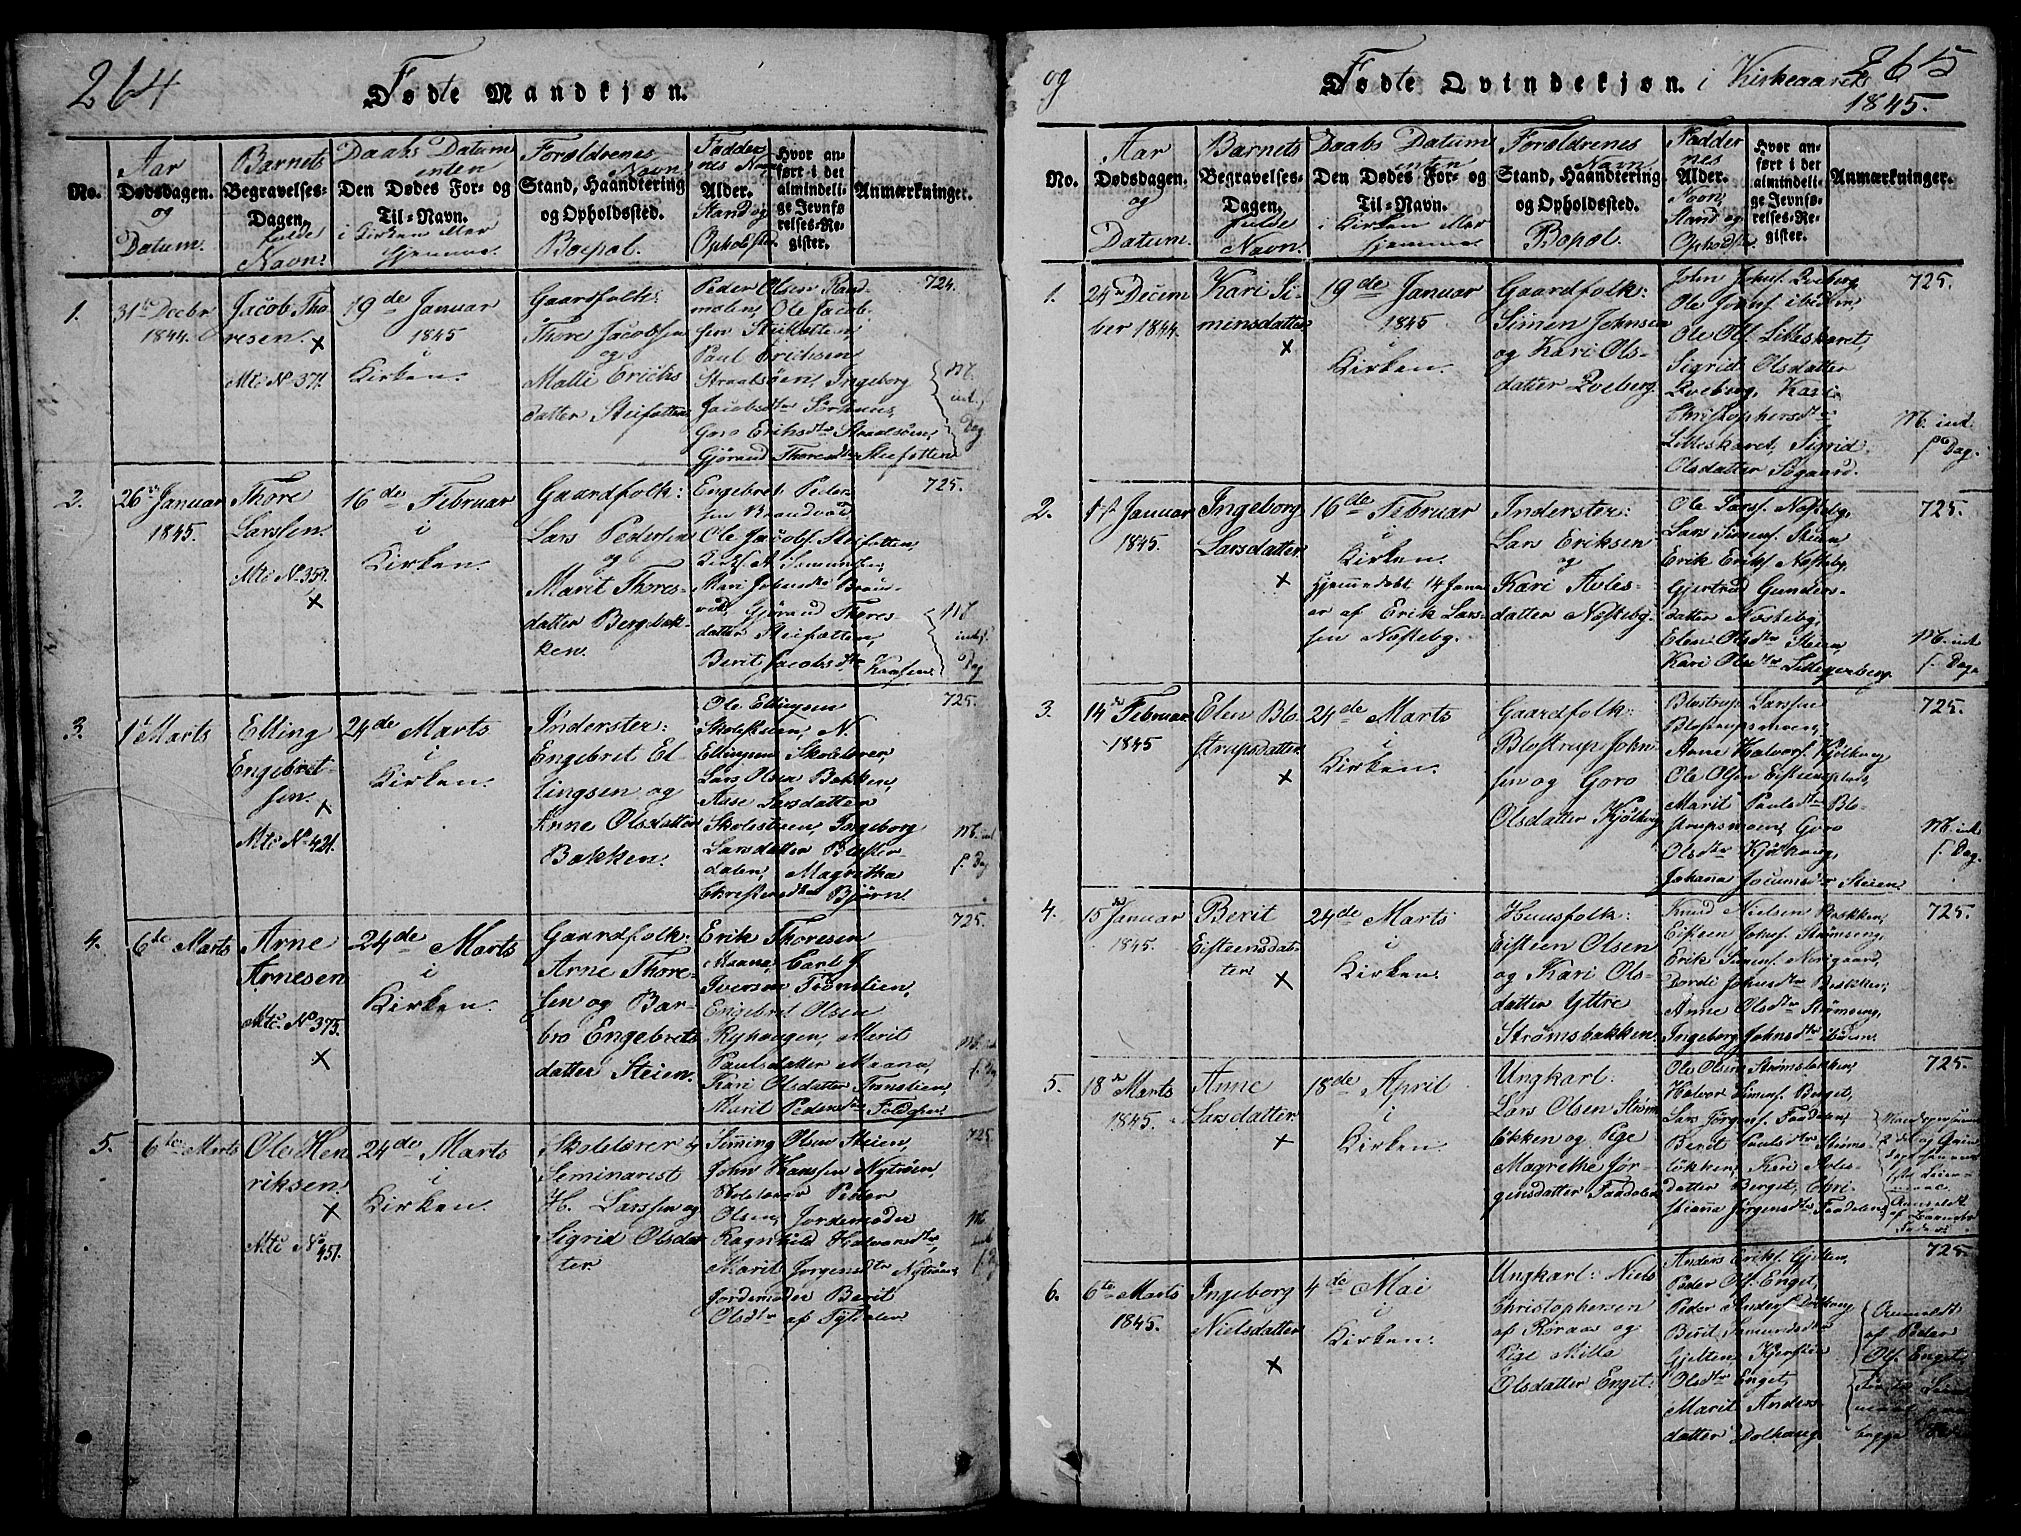 264
Fødte Mandkjøn.
No.
Aar
Dødsdagen.
og
Datum.
Barnets
Begravelses-
Dagen.
fulde
Navn.
Daabs Datum
enten
Den Dødes For- og
Til-Navn.
i Kirken eller
hjemme.
Forældrenes
Navn
Stand, Haandtering
og Opholdssted.
Boepæl.
Fadder
nes Navn
Alder.
Stand og
Opholdsted
Hvor an-
ført i det
almindeli-
ge Jevnfø-
relses-Re-
gister.
Anmærkninger.
1.
31te Decbr
1844.
Jacob Tho
resen.
Mtc No 371.
19de Januar
1845
i
Kirken.
Gaardfolk:
Thore Jacobsen
og
Malle Erichs
datter Steifotten
Peder Olsen Rand-
moien, Ole Jacob-
sen Steifotten,
Paul Erichsen
Straalsøen, Ingeborg
Jacobsdtr
Goro Eriksdtr Straalsøen,
Gjørand Thoresdtr Steifotten
724.
M.
ind.
Dag
2.
26 Januar
1845.
Thore
Larssen.
Mtc No 359.
16de Februar
i
Kirken.
Gaardfolk:
Lars Pedersen
og
Marit Thores-
datter Bergbak-
ken.
Engebret Peder-
sen Brandvold
Ole Jacobs. Steifotten,
Kari Johnsdtr Brand-
vold, Gjørand Thores-
datter Steifotten,
Berit Jacobsdtr
725.
M.
ind.
Dag
3.
1 Marts
Elling
Engebret-
sen.
Mtc No 421.
24de Marts
i
Kirken.
Inderster:
Engebret El-
lingsen og
Anne Olsdatter
Bakken.
Ole Ellingsen
Skolestuen, N.
Ellingsen Skolelærer,
Lars Olsen Bakken,
Aase Larsdatter
Skolestuen, Ingeborg
Larsdatter
dalen, Magretha
Christensdtr Bjørn.
725.
M. ind
f. Dag
4.
6de Marts
Arne
Arnesen
Mtc. No 375.
24de Marts
i
Kirken.
Gaardfolk:
Arne Thore-
sen og Bar-
bro Engebrets
datter Steien.
Erik Thoresen
Maana, Carl J.
Iversen Trønslien,
Engebret Olsen
Ryhaugen, Marit
Paulsdatter Maana,
Kari Olsdatter Trønslien,
Marit Pedersdtr
725.
M. ind
f. Dag
5.
6te Marts
Ole Hen
riksen.
Mtc No
451.
24de Marts
i
Kirken.
Skolelærer &
Seminarist
H. Larssen og
Sigrid Olsdat
ter
Siming Olsen Steien,
John Hanssen Nytrøen,
Skolelærer Peder
Olsen, Jordemoder
Ragnhild Halvorsdtr,
Marit Jørgensdtr Nytrøen,
Jordemoder Berit
Olsdtr af Tyldalen
725
M.
ind
f. Dag
og
Fødte Qvindekjøn. i Kirkeaaret
265
1845.
No.
Aar
Dødsdagen.
og
Datum.
Barnets
Begravelses-
Dagen.
fulde
Navn.
Daabs Datum
enten
Den Dødes For- og
Til-Navn.
i Kirken eller
hjemme
Forældrenes
Navn
Stand, Haandtering
og Opholdssted.
Bopæl.
Fadder
nes
Alder.
Navn,
Stand og
Opholdstd
Hvor an-
ført i det
almindeli-
ge Jevnfø-
relses-Re-
gister.
Anmærkninger.
1.
24 Decem
ber 1844.
Kari Si-
mensdatter
19de Januar
1845
i
Kirken.
Gaardfolk:
Simen Johnsen
og Kari Ols-
datter Qveberg.
John Johns. Qveberg,
Ole Johns. ibidem,
Ole Ols. Lilleskaret,
Sigrid Olsdatter
Qveberg, Kari
Christophersdtr
Lilleskaret, Sigrid
Olsdatter Søgaard.
725.
M. ind.
f. Dag.
2.
1 Januar
1845.
Ingeborg
Larsdatter
16de Februar
i
Kirken.
Hjemmedøbt 14 Janu
ar af Erik Lars-
sen Nøsteby.
Inderster:
Lars Eriksen
og
Kari Avles-
datter Nøsteby.
Ole Larss. Nøsteby,
Lars Simens. Steien
Erik Eriks. Nøsteby,
Gjertrud Gunders-
datter Nøsteby,
Elen Olsdtr Steien,
Kari Olsdtr Lillegjerberg.
725.
M. ind
f. Dag
3.
14 Februar
1845
Elen Blo-
strupsdatter
24de Marts
i
Kirken.
Gaardfolk:
Blostrup John-
sen og Goro
Olsdatter Kjølhaug
Blostrup Larssen
Blostrupmoen,
Arne Halvors. Kjølhaug
Ole Olsen Eisteensplads,
Marit Paulsdtr Blo-
strupmoen, Goro
Olsdtr Kjølhaug,
Johana Jocumsdtr Steien.
725.
M. ind
f. Dag.
4.
15 Januar
1845.
Berit
Eisteensdat-
ter
24de Marts
i
Kirken.
Huusfolk:
Eisteen Olsen
og Kari Ols-
datter Yttre
Strømsbakken.
Knud Nielsen Bakken,
Eisteen Olsf. Strømseng,
Erik Simens. Norigaard,
Dordi Johnsdtr Bakken,
Anne Olsdtr Strømseng,
Ingeborg Johnsdtr ibidem.
725.
5.
18 Marts
1845.
Anne
Larsdatter
18de April
i
Kirken.
Ungkarl:
Lars Olsen Strøms
løkken og Pige
Magrethe Jør-
gensdatter Faadalen
Ole Olsen Strømsløkken,
Halvor Simens. Berget,
Lars Jørgens. Faadalen,
Berit Paulsdtr Strøms-
løkken, Kari Avles-
datter Berget, Chri-
stiana Jørgensdtr Faadalen
725.
Anmeldt
af Barnets
Fader
6.
6te Marts
1845.
Ingeborg
Nielsdatter
4de Mai
i
Kirken.
Ungkarl: Niels
Christophersen
af Røraas og
Pige Mille
Olsdatter Enget.
Anders Eriks. Gjelten,
Peder Ols. Enget
Peder Anders. Dølhaug
Berit Samundsdtr
Gjelten, Kjersten
Olsdtr Enget,
Marit Anders-
datter Dølhaug
725.
Anmeldt
af Peder
Ols. Enget